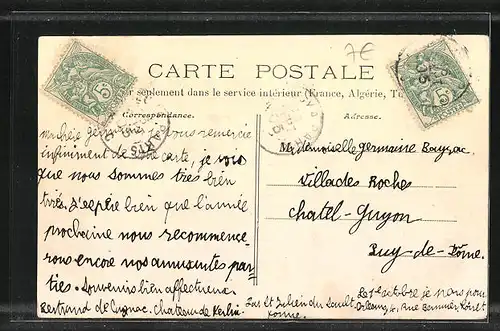 7€
CARTE POSTALE
seulement dans le service intérieur (France, Algérie, Tu
Correspondance.
Adresse.
5
5
PARIS
Ma chère Germaine je vous remercie
infiniment de carte, je vois
que nous sommes très bien
tirés. J'espère bien que l'année
prochaine nous recommence
rons encore nos amusantes par
ties. Souvenirs bien affectueux.
Bertrand de Cugnac. Chateau de
Par St Julien du Sault
Yonne.
Mademoiselle Germaine
Villa des Roches
Chatel-Guyon
Puy-de-Dôme.
Le 1er octobre je pars pour
Orléans, 4, Rue